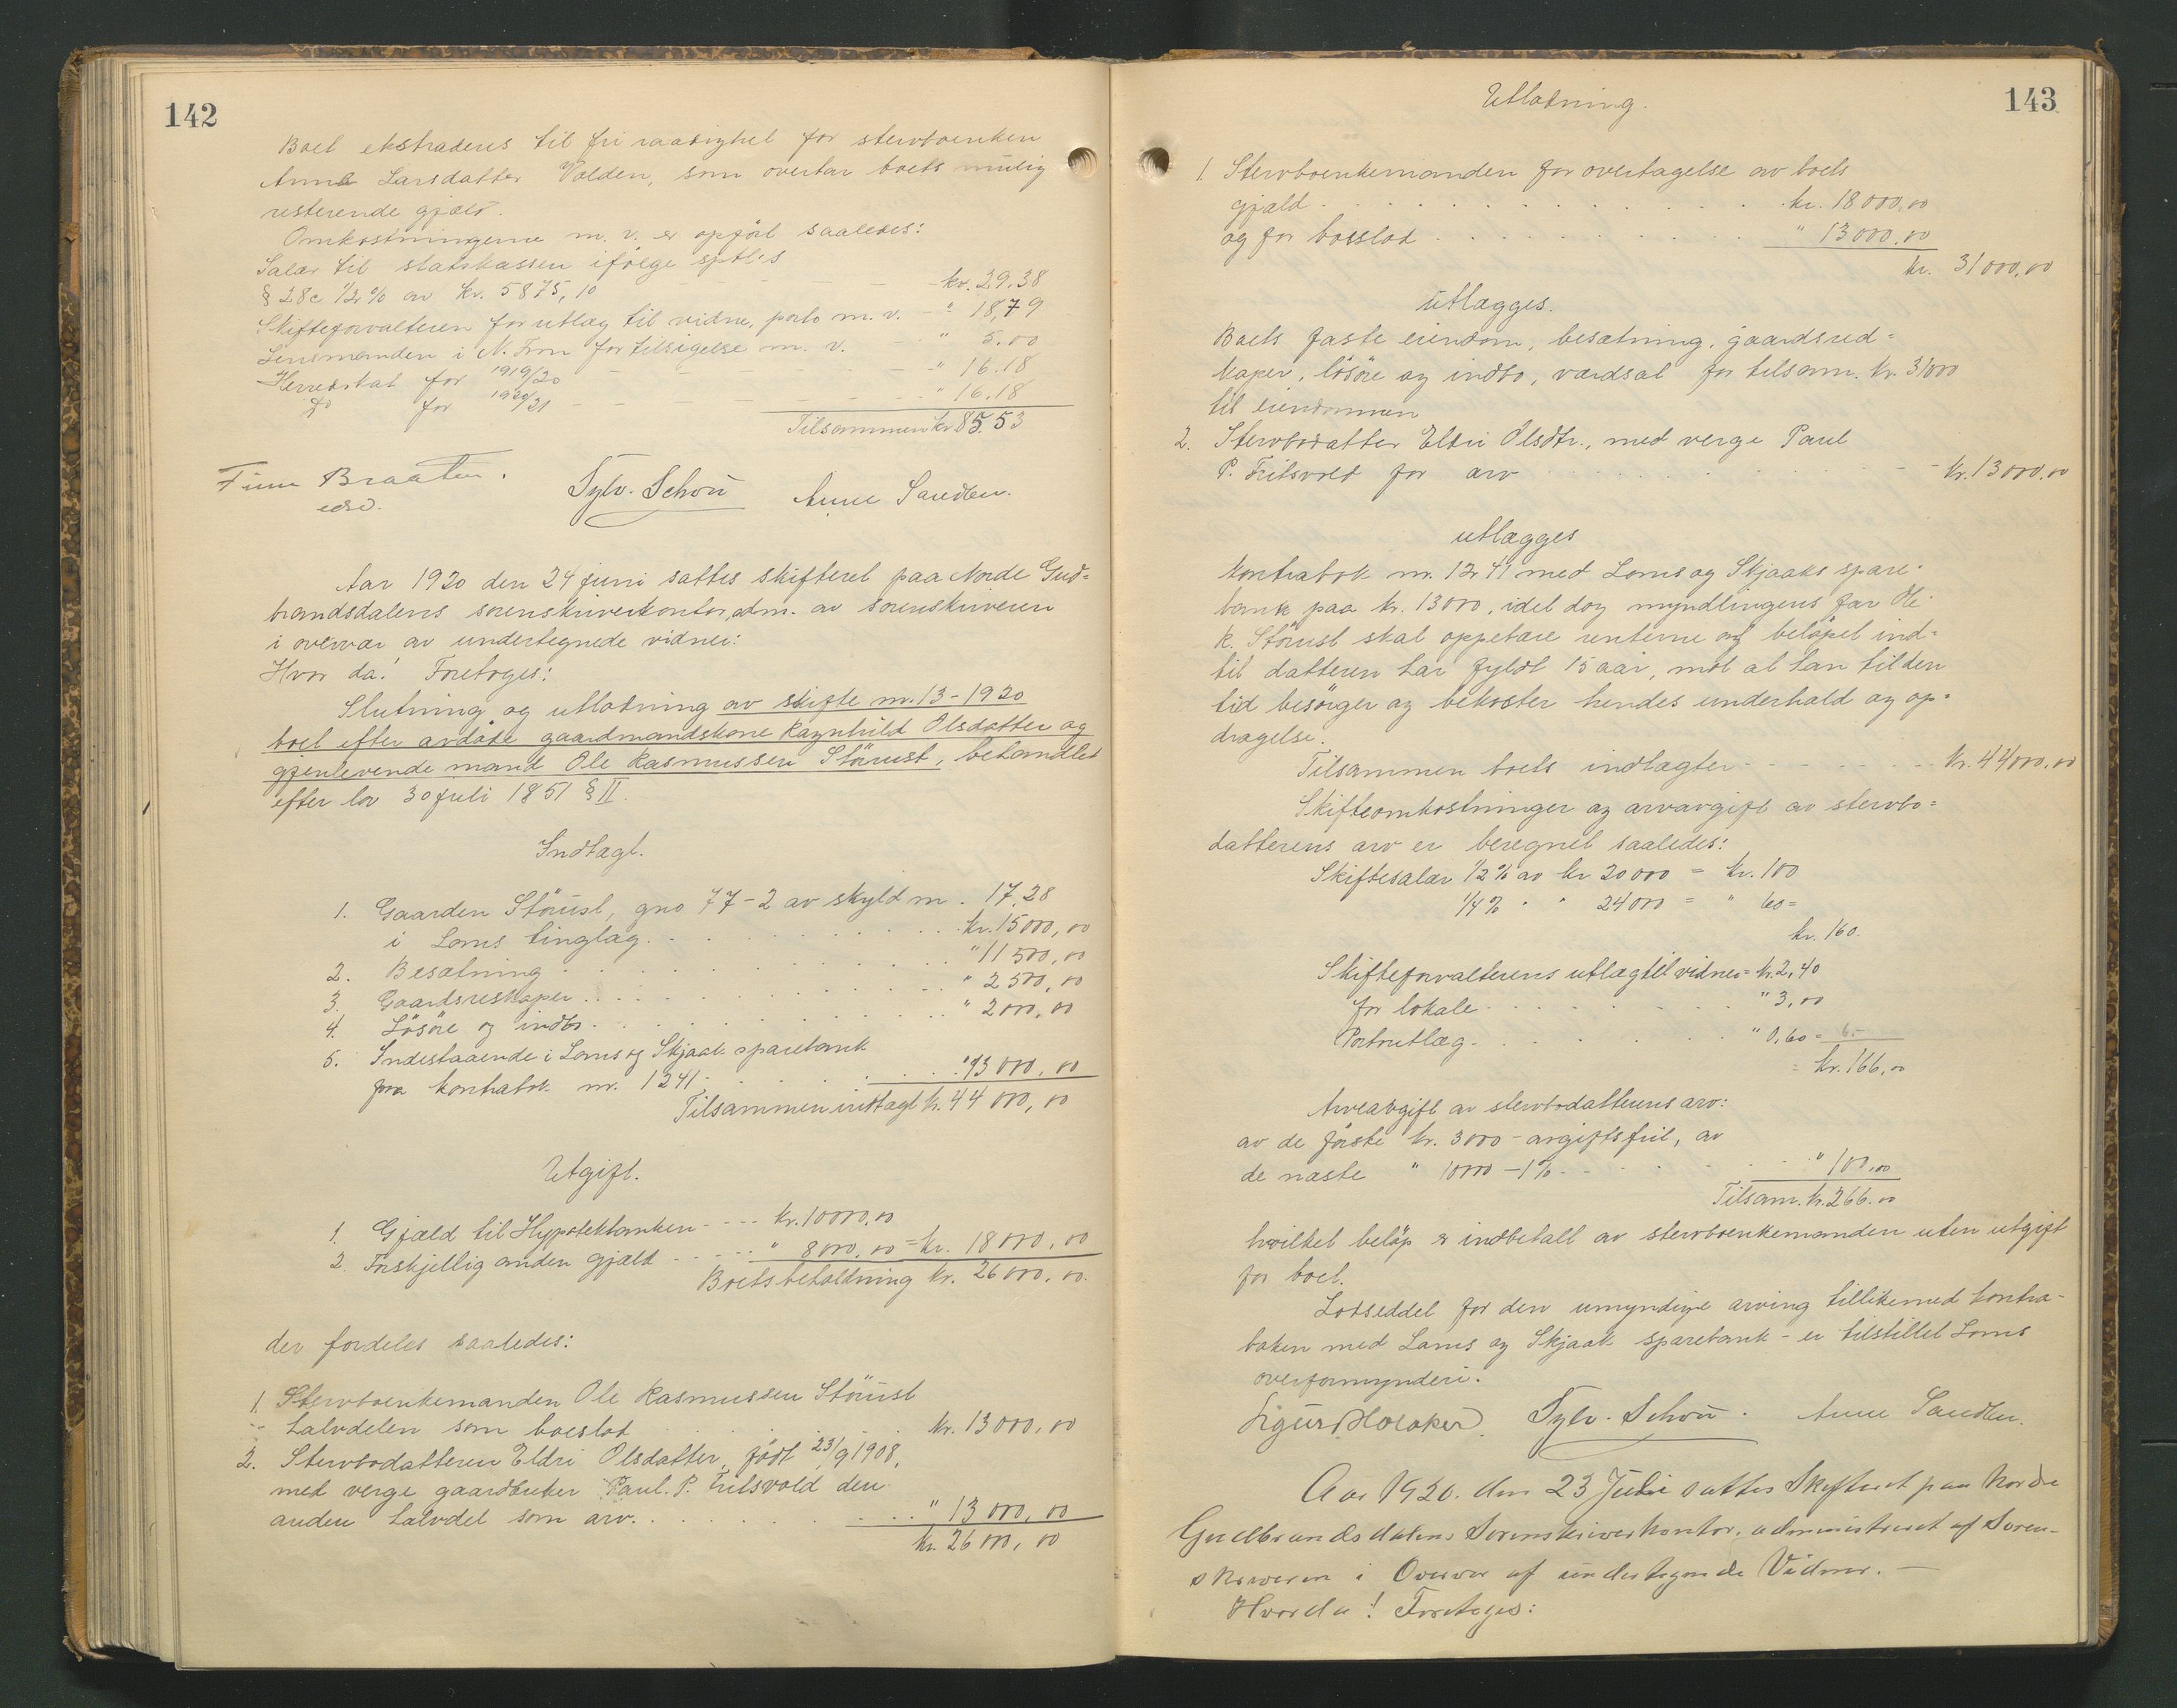 142
Boet ekstraderes til fri raadighet for stervboenken
Anne Larsdatter Volden, som overtar boets mulig
resterende gjæld.
Omkostningerne m. v. er opført saaledes:
Salær til statskassen ifølge sptl.s
§ 28c 1/2 % av kr. 5875,10 - - - - - kr. 29.38
Skifteforvalteren for utlæg til vidne, porto m. v. - " 18,79
Lensmanden i N. Fron for tilsigelse m. v. " 5.00
Herredskat for 1919/20 - - - - - - " 16.18
do for 1920/21 - - - - " 16.18
Tilsammen kr 85.53
Finn Braaten. Sylv. Schou Anne Sandbu.
edsv.
Aar 1920 den 24 juni sattes skifteret paa Nordre Gud=
brandsdalens sorenskriverkontor, adm. av sorenskriveren
i overvær av undertegnede vidner:
Hvor da! Foretoges:
Slutning og utlodning av skifte nr. 13-1920
boet efter avdøde gaardmandskone Ragnhild Olsdatter og
gjenlevende mand Ole Rasmussen Störust, behandlet
efter lov 30 juli 1851 § II.
Indtægt.
1. Gaarden Störust, gno 77-2 av skyld m. 17.28
i Loms tinglag. . . . . . . . . . kr. 15000,00
2. Besætning - . . . . . . . . . " 11500,00
3. Gaardsredskaper . . . . . . . . " 2500,00
4. Løsøre og indbo. . . . . . . . . " 2000,00
5. Indestaaende i Loms og Skjaak sparebank
paa kontrabok nr. 1241 . . . . . . " 13000,00
Tilsammen indtægt kr. 44000,00
Utgift.
1. Gjæld til Hypotekbanken - - - - kr. 10000,00
2. Forskjellig anden gjæld - - - - " 8000,00 = kr. 18000,00
Boets beholdning kr. 26000,00.
der fordeles saaledes:
1. Stervboenkemanden Ole Rasmussen Störust
halvdelen som boeslod . . . . . kr. 13000,00
2. Stervbodatteren Eldri Olsdatter, født 23/9 1908,
med verge gaardbruker Paul. P. Fritsvold den
anden halvdel som arv. . . . . . . " 13000,00
kr. 26000,00
143
Utlodning.
1. Stervboenkemanden for overtagelse av boets
gjæld . . . . . . . . . . . kr. 18000,00
og for boeslod . . . . . . . . " 13000,00
kr. 31000,00
utlægges.
Boets faste eiendom, besætning, gaardsred=
skaper, løsöre og indbo, værdsat for tilsam. kr. 31000
til eiendommen
2. Stervbodatter Eldri Olsdtr., med verge Paul
P. Fritsvold for arv . . . . . . . - - kr. 13000,00
utlægges
kontrabok nr. 1241 med Loms og Skjaaks spare-
bank paa kr. 13000, idet dog myndlingens far Ole
R. Störust skal oppebære renterne og beløpet ind=
til datteren har fyldt 15 aar, mot at han til den
tid besörger og bekoster hendes underhold og op=
dragelse.
Tilsammen boets indtægter - - - - - - - kr. 44000,00
Skifteomkostninger og arvavgift av stervbo=
datterens arv er beregnet saaledes:
Skiftesalær 1/2 % av kr 20000 = kr. 100
1/4 % " " 24000 = " 60 =
kr. 160.
Skifteforvalterens utlæg til vidner = kr. 2,40
for lokale . . . . . . . . . " 3,00
Portoutlæg . . . . . . . . . " 0,60 = 6.-
= kr. 166,00
Arveavgift av stervbodatterens arv:
av de første kr. 3000 - avgiftsfrit, av
de næste " 10000 - 1 % . . . . . . . " 100,00
Tilsam. kr. 266.00
hvilket beløp er indbetalt av stervboenkemanden uten utgift
for boet.
Lodseddel for den umyndige arving tillikemed kontra-
boken med Loms og Skjaak sparebank - er tilstillet Loms
overformynderi.
Sigurd Holaker. Sylv. Schou. Anne Sandbu.
Aar 1920. den 23 Juli sattes Skifteret paa Nordre
Gudbrandsdalens Sorenskriverkontor, administreret af Soren-
skriveren i Overvær af undertegnede Vidner. -
Hvor da! Foretoges: